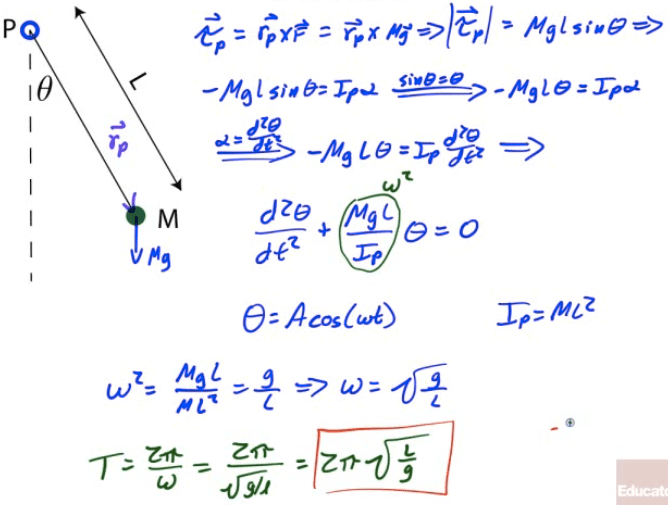 P
θ
L
r⃗p
M
Mg
τ⃗p = r⃗p x F⃗ = r⃗p x Mg⃗ => |τ⃗p| = Mgl sinθ =>
-Mgl sinθ = Ipα sinθ=θ => -MgLθ = Ipα
α = d²θ/dt² => -MgLθ = Ip d²θ/dt² =>
d²θ/dt² + MgL/Ip θ = 0 ω²
θ = A cos(ωt) Ip = ML²
ω² = MgL/ML² = g/L => ω = √g/L
T = 2π/ω = 2π/√g/l = 2π √L/g
Educato